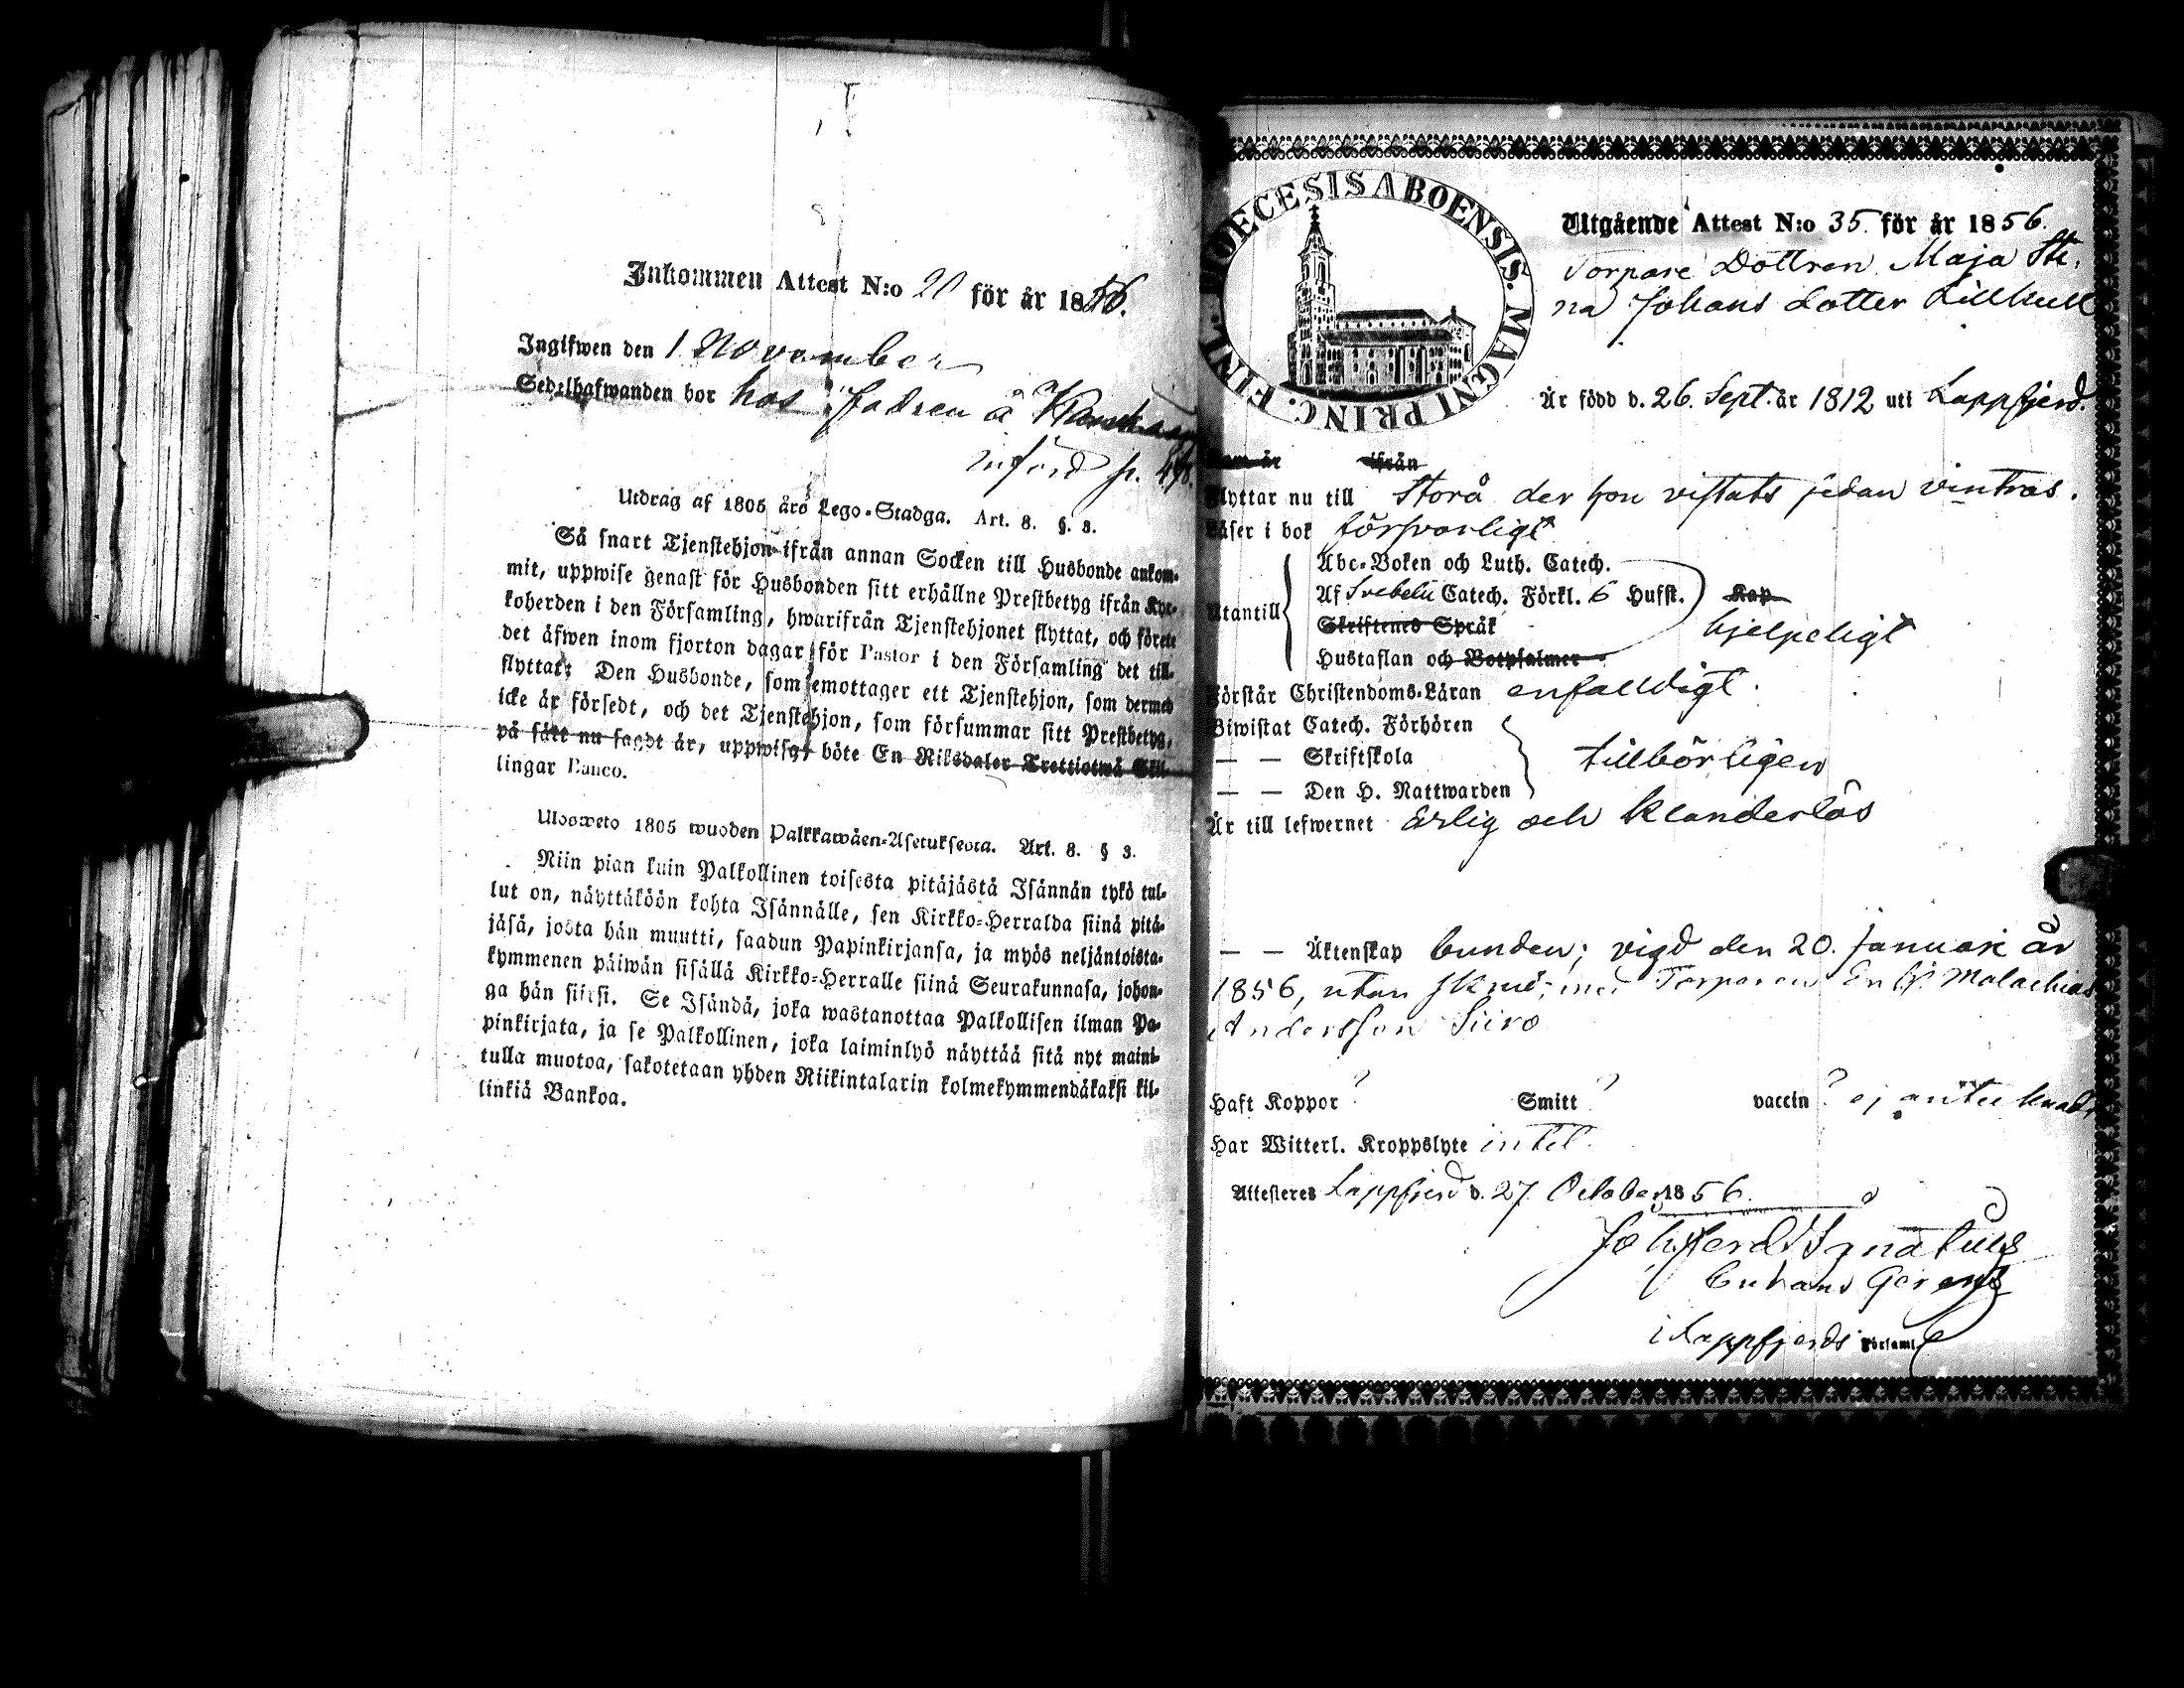 Inkommen Attest N:o 20 för år 1856.
Ingifwen den 1 November
Sedelhafwanden bor hos fadren å
införd p.
Utdrag af 1805 års Lego-Stadga. Art. 8. §. 3.
Så snart Tjenstehjon ifrån annan Socken till Husbonde ankom-
mit, uppwise genast för Husbonden sitt erhållne Prestbetyg ifrån Kyr-
koherden i den Församling, hwarifrån Tjenstehjonet flyttat, och förete
det äfwen inom fjorton dagar för Pastor i den Församling det till-
flyttat: Den Husbonde, som emottager ett Tjenstehjon, som dermed
icke är försedt, och det Tjenstehjon, som försummar sitt Prestbetyg,
på sått nu sagdt är, uppwisa, böte En Riksdaler Trettiotwå Skil-
lingar Banco.
Ulosweto 1805 wuoden Palkkawäen-Asetuksesta. Art. 8. § 3.
Niin pian kuin Palkollinen toisesta pitäjästä Isännän tykö tul-
lut on, näyttäköön kohta Isännälle, sen Kirkko-Herralda siinä pitä-
jäsä, josta hän muutti, saadun Papinkirjansa, ja myös neljäntoista-
kymmenen päiwän sisällä Kirkko-Herralle siinä Seurakunnasa, johon-
ga hän siirsi. Se Isändä, joka wastanottaa Palkollisen ilman Pa-
pinkirjata, ja se Palkollinen, joka laiminlyö näyttää sitä nyt maini-
tulla muotoa, sakotetaan yhden Riikintalarin kolmekymmendäkaksi kil-
linkiä Bankoa.
DIOECESIS ABOENSIS. MAGNI PRINC. FINL.
Utgående Attest N:o 35 för år 1856.
Torpare Dottren Maja Sti-
na Johans dotter Lillkull
Är född d. 26. Sept. år 1812 uti Lappfjerd.
Som är ifrån
Flyttar nu till Storå der hon vistats sedan vintras.
Läser i bok försvarligt
Abc-Boken och Luth. Catech.
Utantill Af Svebelii Catech. Förkl. 6 Hufst. Kap
Skriftenes Språk hjelpeligt
Hustaflan och Botpsalmer
Förstår Christendoms-Läran enfaldigt.
Biwistat Catech. Förhören
— — Skriftskola tillbörligen
— — Den H. Nattwarden
Är till lefwernet Erlig och klanderlös
— — Äktenskap bunden; vigd den 20. Januari år
1856, utan med Torparen Enkl. Malachias
Andersson Siiro
Haft Koppor ? Smitt ? vaccin ? ej antecknadt
Har Witterl. Kroppslyte intet.
Attesteres Lappfjerd d. 27 October 1856.
Joh. Ferd. Ignatius
Cur. Gerens
i Lappfjerds Församl.